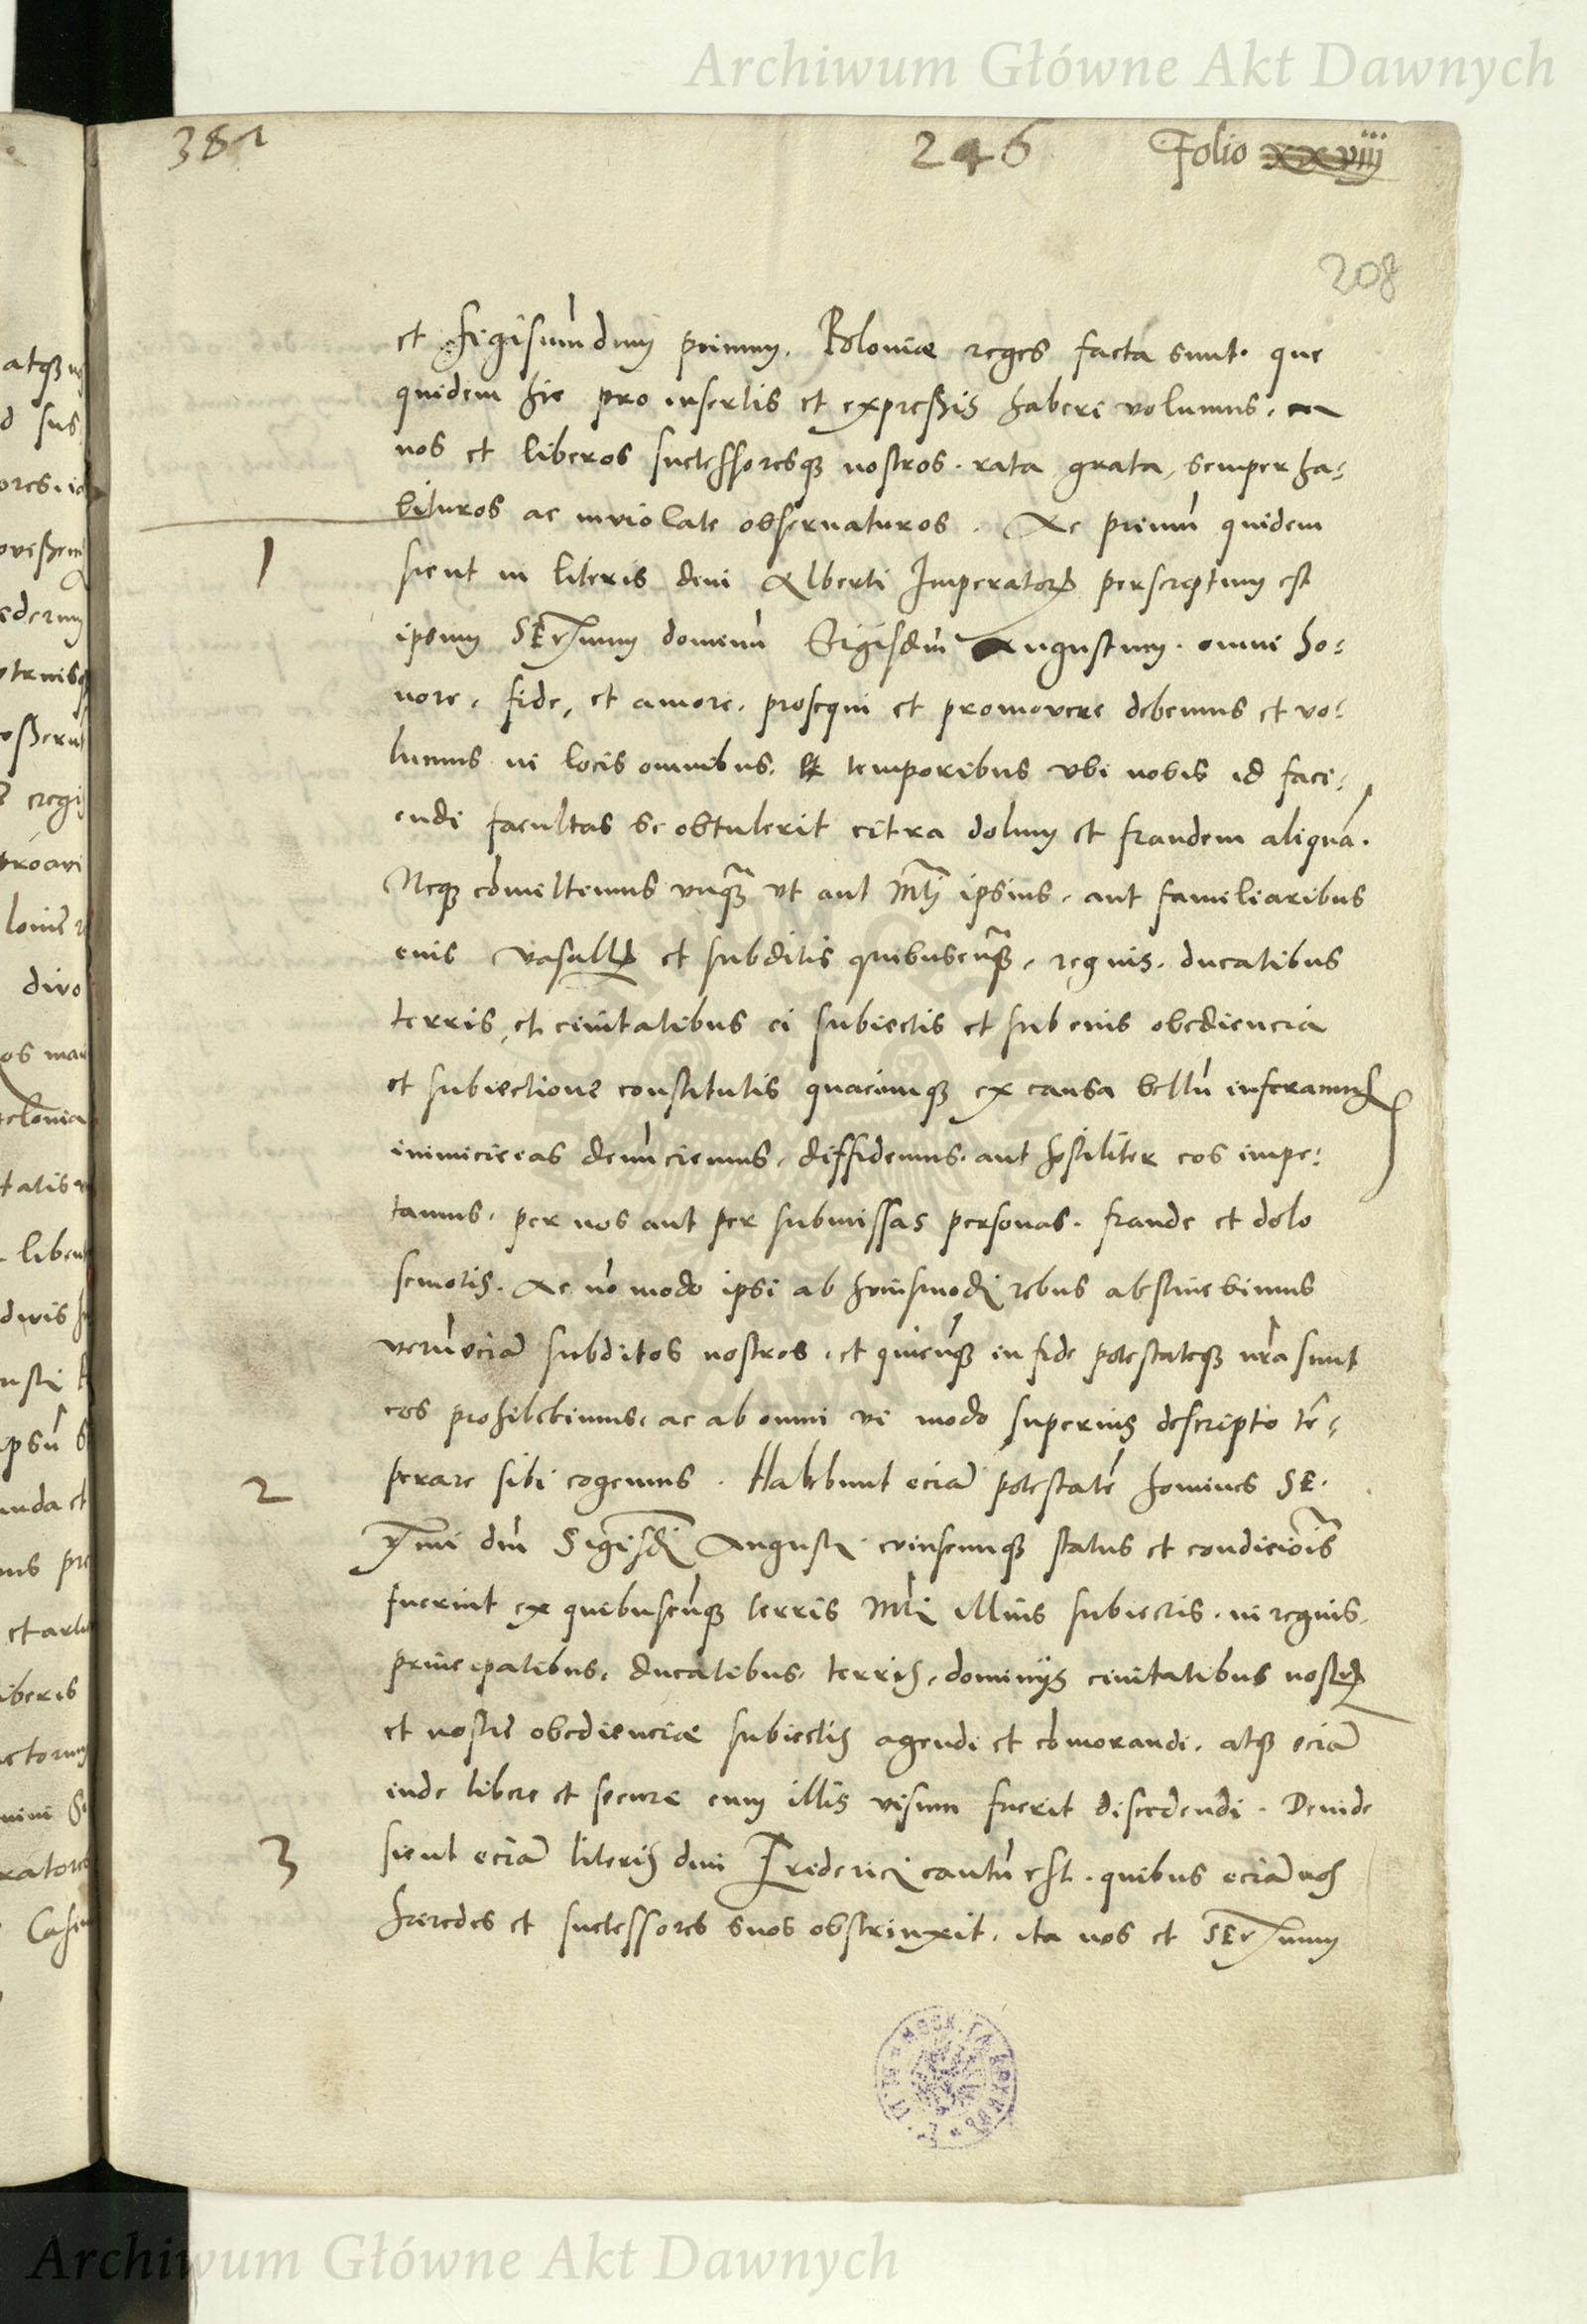 Archiwum Główne Akt Dawnych
381
246 Folio xxviij
208
et Sigismūdum primum. Poloniæ reges facta sunt. que
quidem hic pro insertis et expressis haberi volumus,
nos et liberos successoresq; nostros. rata grata, semper ha:
bituros ac inviolate observaturos. Ac primū quidem
1
sicut in literis divi Alberti Imperatoris perscriptum est
ipsum SErmum dominū Sigisdm̄ Augustum. omni ho:
nore, fide, et amore, prosequi et promovere debemus et vo:
lumus in locis omnibus, et temporibus vbi nobis id faci:
endi facultas se obtulerit citra dolum et fraudem aliquā.
Neq; cōmittemus vnq̄ vt aut Mti ipsius, aut familiaribus
eius vasallis et subditis quibuscunq;, regnis, ducatibus
terris, et civitatibus ei subiectis et sub eius obediencia
et subiectione constitutis quacunq; ex causa bellū inferamus
inimicicias denūciemus, diffidemus, aut hostiliter eos impe:
tamus, per nos aut per submissas personas. fraude et dolo
semotis. Ac nō modo ipsi ab huiusmodi rebus abstinebimus
verūeciā subditos nostros, et quicūq; in fide potestateq; nrā sunt
eos prohibebimus, ac ab omni vi modo superius descripto tē:
2
perare sibi cogemus. Habebunt eciā potestatē homines SE.
rmi dm̄ Sigisdi Augusti cuiuscunq; status et condiciōis
fuerint ex quibuscūq; terris Mti illius subiectis. in regnis,
principatibus, ducatibus, terris, dominijs civitatibus nostris
et nostre obedienciæ subiectis agendi et cōmorandi, atq; eciā
inde libere et secure cum illis visum fuerit discedendi. Deinde
3
sicut eciā literis divi Friderici cautū est. quibus eciā nos
hæredes et successores suos obstrinxit, ita nos et SErmum
Archiwum Główne Akt Dawnych